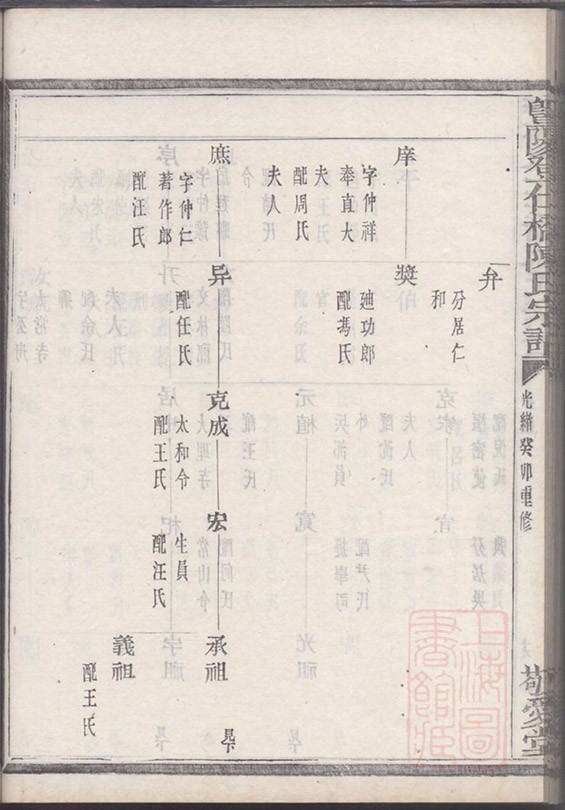 暨陽登仕橋陳氏宗譜
光緒癸卯重修
敬愛堂
上海圖書館藏
弁
分居仁
和
庠
字仲祥
奉直大
夫
配周氏
夫人
奬
迪功郎
配馮氏
庶
字仲仁
著作郎
配汪氏
异
配任氏
克成
太和令
配王氏
宏
生員
配汪氏
承祖
義祖
配王氏